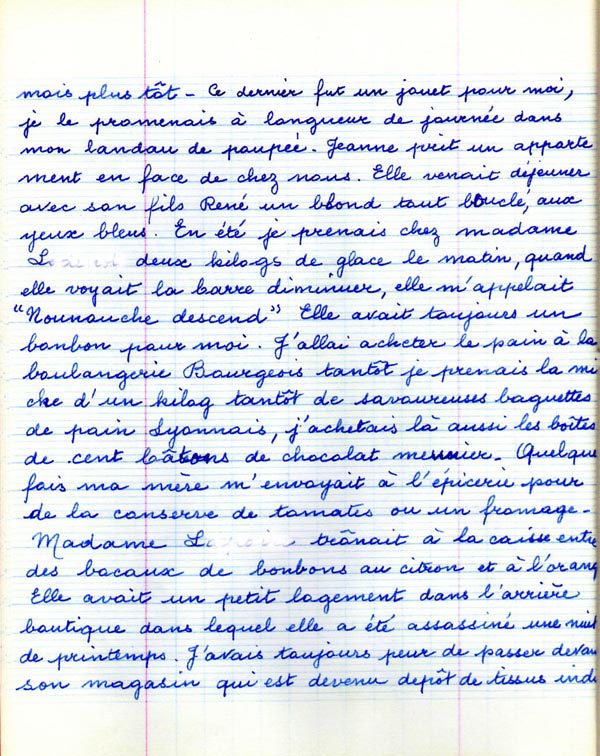 mois plus tôt - Ce dernier fut un jouet pour moi,
je le promenais à longueur de journée dans
mon landau de poupée. Jeanne prit un apparte
ment en face de chez nous. Elle venait déjeuner
avec son fils René un blond tout bouclé, aux
yeux bleus. En été je prenais chez madame
deux kilogs de glace le matin, quand
elle voyait la barre diminuer, elle m'appelait
"Nounouche descend" Elle avait toujours un
bonbon pour moi. J'allai acheter le pain à la
boulangerie Bourgeois tantôt je prenais la mi
che d'un kilog tantôt de savoureuses baguettes
de pain Lyonnais, j'achetais là aussi les boîtes
de cent bâtons de chocolat meunier. Quelque
fois ma mère m'envoyait à l'épicerie pour
de la conserve de tomates ou un fromage -
Madame trônait à la caisse entre
des bocaux de bonbons au citron et à l'orang
Elle avait un petit logement dans l'arrière
boutique dans lequel elle a été assassiné une nuit
de printemps. J'avais toujours peur de passer devan
son magasin qui est devenu depôt de tissus ind